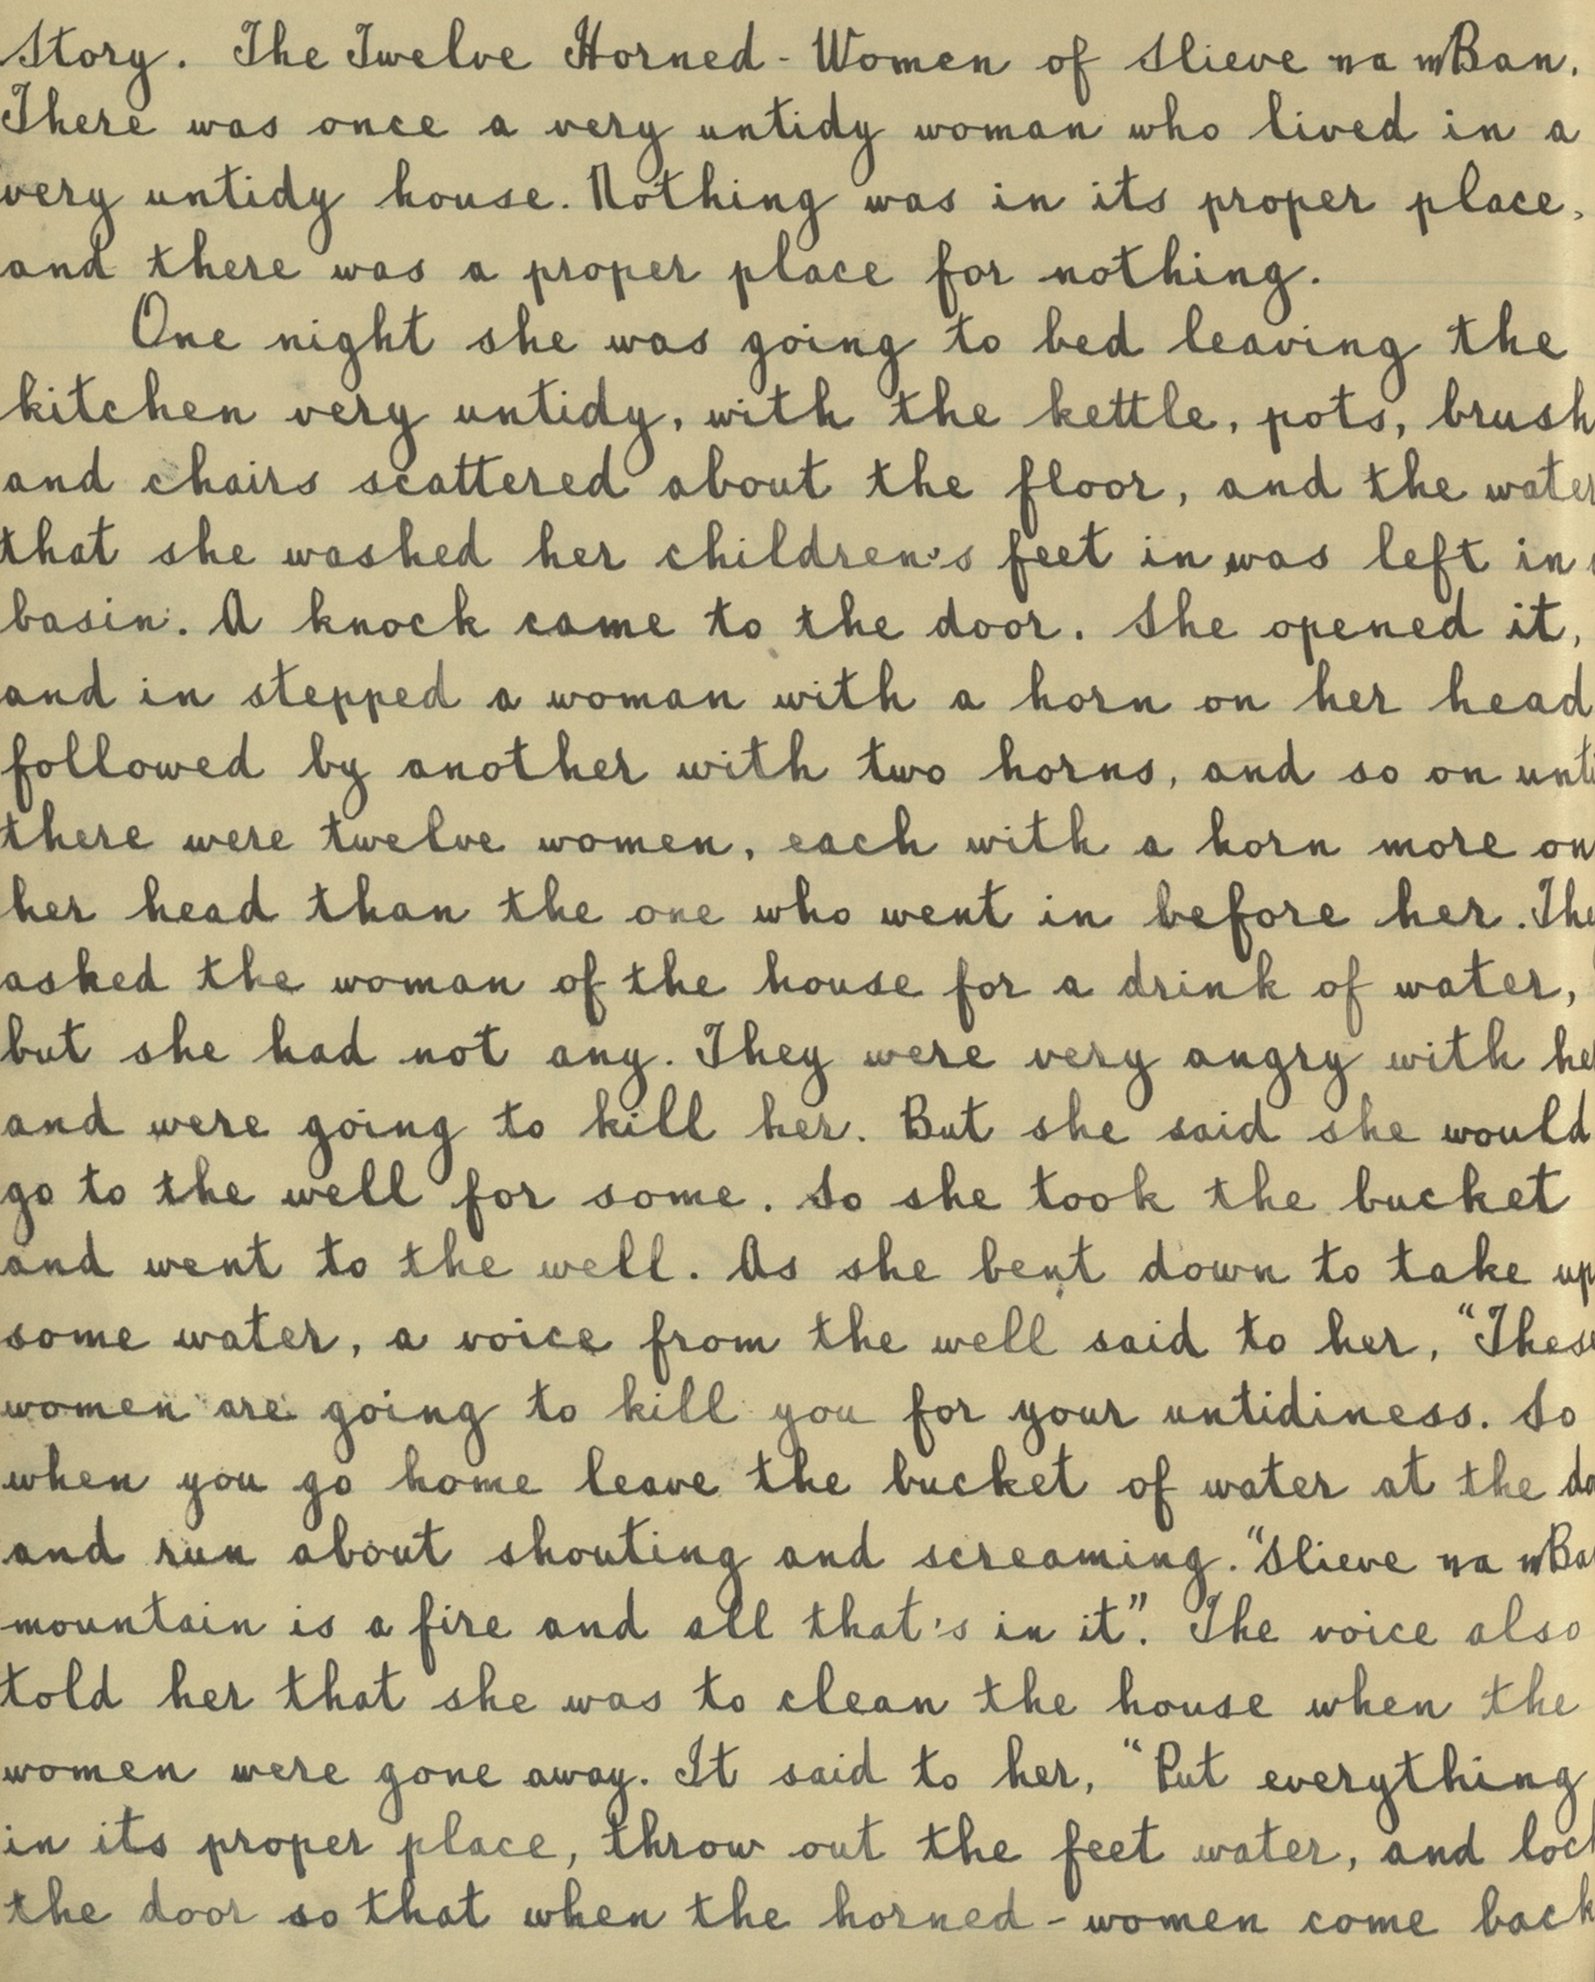 Story. The Twelve Horned - Women of Slieve na mBan.
There was once a very untidy woman who lived in a
very untidy house. Nothing was in its proper place,
and there was a proper place for nothing.
One night she was going to bed leaving the
kitchen very untidy, with the kettle, pots, brush
and chairs scattered about the floor, and the water
that she washed her children's feet in was left in
basin. A knock came to the door. She opened it,
and in stepped a woman with a horn on her head
followed by another with two horns, and so on unti
there were twelve women, each with a horn more on
her head than the one who went in before her. The
asked the woman of the house for a drink of water,
but she had not any. They were very angry with he
and were going to kill her. But she said she would
go to the well for some. So she took the bucket
and went to the well. As she bent down to take up
some water, a voice from the well said to her, "These
women are going to kill you for your untidiness. So
when you go home leave the bucket of water at the do
and run about shouting and screaming. "Slieve na mBa
mountain is a fire and all that's in it". The voice also
told her that she was to clean the house when the
women were gone away. It said to her, "Put everything
in its proper place, throw out the feet water, and loc
the door so that when the horned - women come back